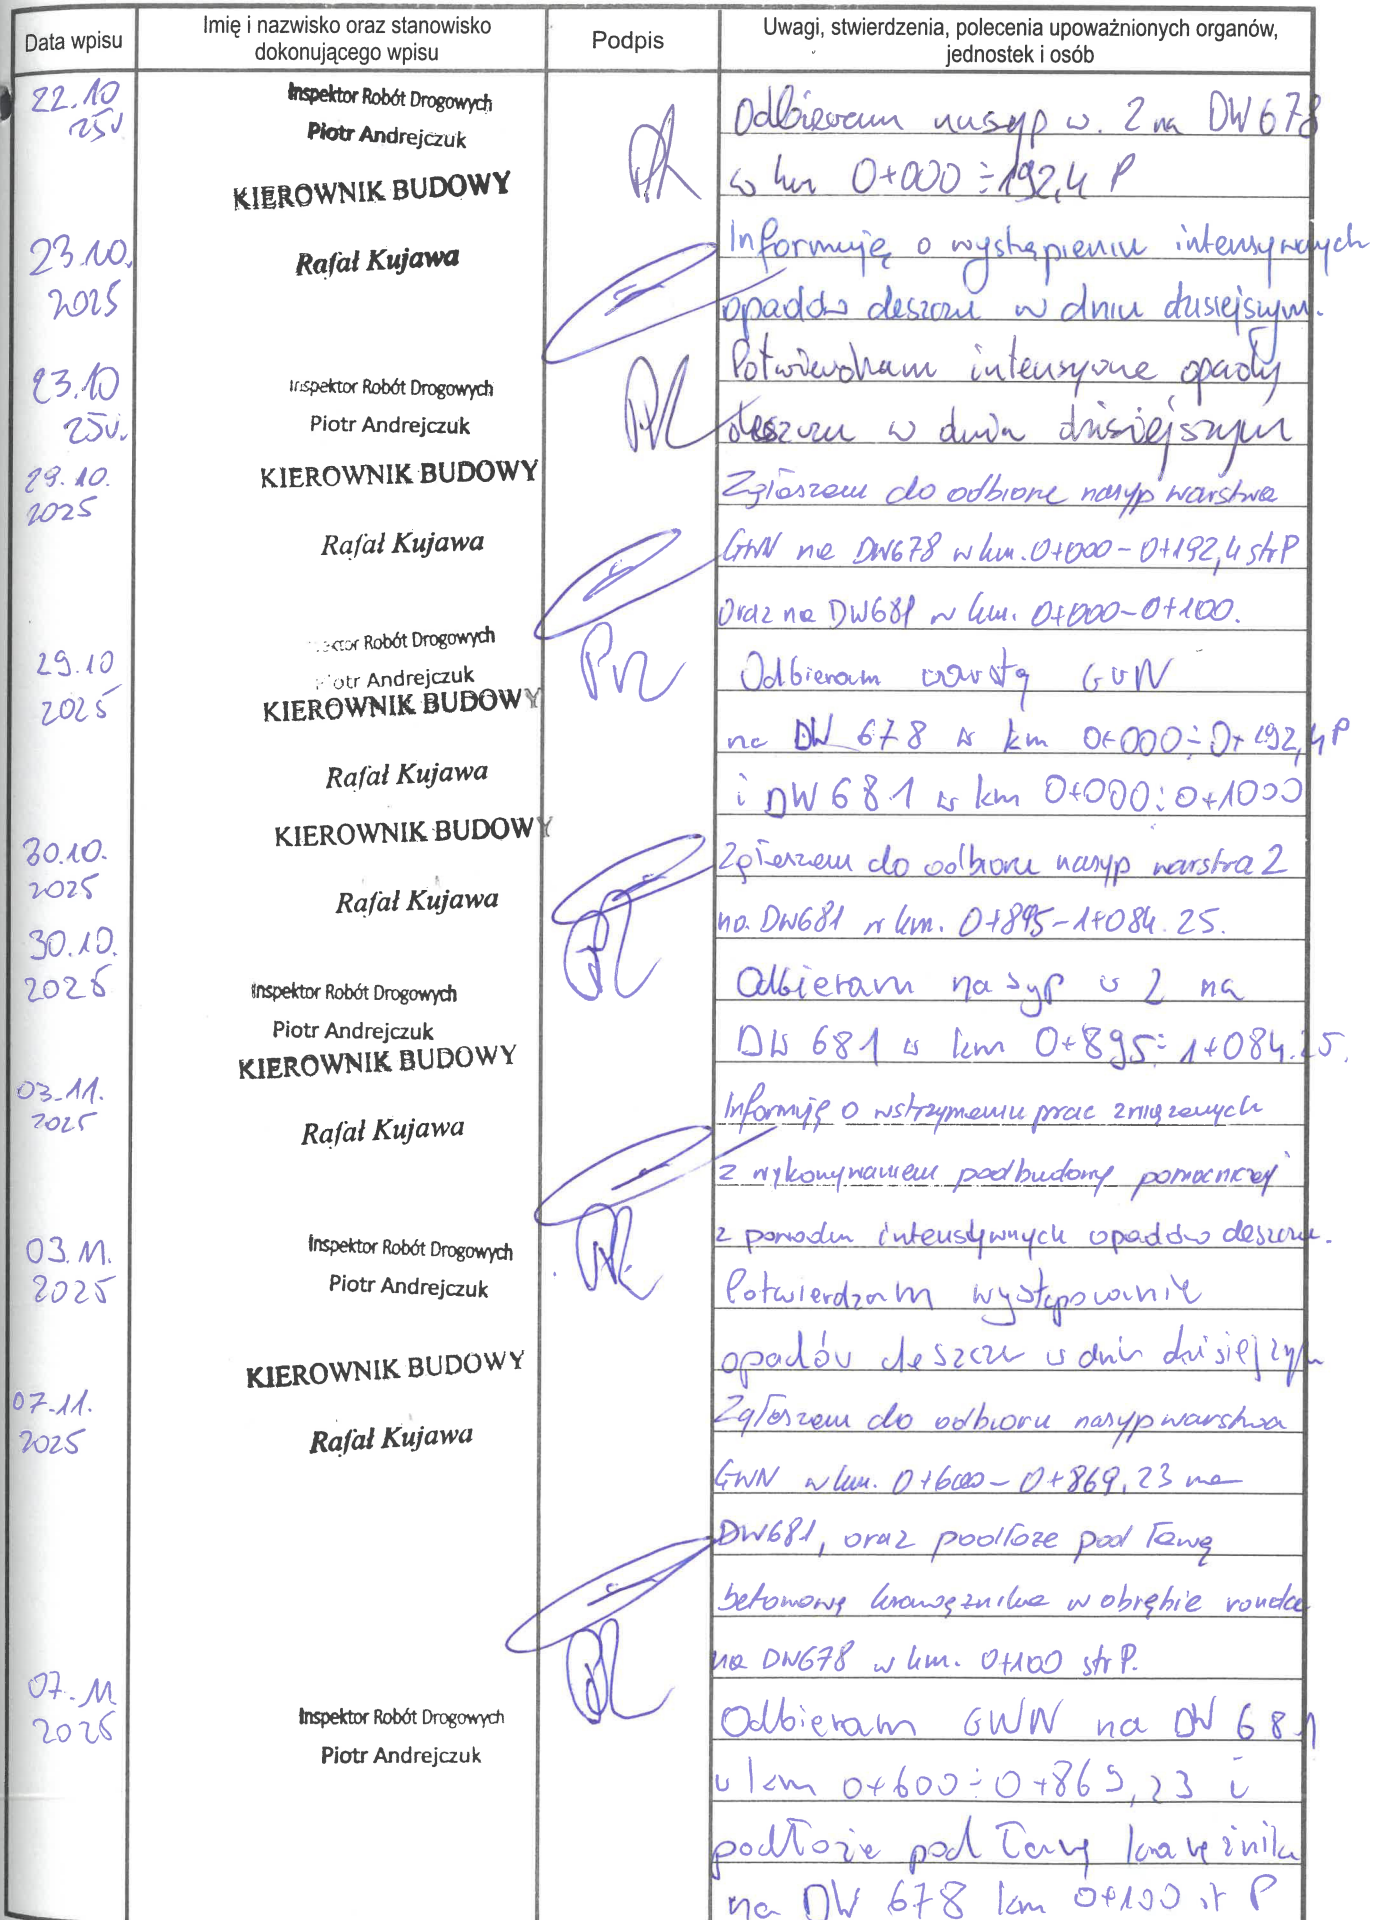 Data wpisu
Imię i nazwisko oraz stanowisko
dokonującego wpisu
Podpis
Uwagi, stwierdzenia, polecenia upoważnionych organów,
jednostek i osób
22.10
25r
Inspektor Robót Drogowych
Piotr Andrejczuk
Odbieram nasyp w. 2 na DW 678
w km 0+000 ÷ 192,4 P
KIEROWNIK BUDOWY
23.10.
2025
Rafał Kujawa
Informuję o wystąpieniu intensywnych
opadów deszczu w dniu dzisiejszym.
23.10
25r.
Inspektor Robót Drogowych
Piotr Andrejczuk
Potwierdzam intensywne opady
deszczu w dniu dzisiejszym
KIEROWNIK BUDOWY
29.10.
2025
Rafał Kujawa
Zgłaszam do odbioru nasyp warstwa
GWN na DW678 w km. 0+000 - 0+192,4 str P
oraz na DW681 w km. 0+000-0+100.
Robót Drogowych
29.10
2025
Andrejczuk
Odbieram warstę GWN
na DW 678 w km 0+000 ÷ 0+192,4 P
i DW 681 w km 0+000 ÷ 0+1000
KIEROWNIK BUDOWY
Rafał Kujawa
KIEROWNIK BUDOWY
30.10.
2025
Rafał Kujawa
Zgłaszam do odbioru nasyp warstwa 2
na. DW681 w km. 0+895-1+084.25.
30.10.
2025
Inspektor Robót Drogowych
Piotr Andrejczuk
Odbieram nasyp w 2 na
DW 681 w km 0+895 ÷ 1+084.25.
KIEROWNIK BUDOWY
03.11.
2025
Rafał Kujawa
Informuję o wstrzymaniu prac związanych
z wykonywaniem podbudowy pomocniczej
z powodu intensywnych opadów deszczu.
03.11.
2025
Inspektor Robót Drogowych
Piotr Andrejczuk
Potwierdzam występowanie
opadów deszczu w dniu dzisiejszym
KIEROWNIK BUDOWY
07.11.
2025
Rafał Kujawa
Zgłaszam do odbioru nasyp warstwa
GWN w km. 0+600 - 0+869,23 na
DW681, oraz podłoże pod ławę
betonową krawężnika w obrębie ronda
na DW678 w km. 0+100 str P.
07.11
2025
Inspektor Robót Drogowych
Piotr Andrejczuk
Odbieram GWN na DW 681
w km 0+600 ÷ 0+869,23 i
podłoże pod ławę krawężnika
na DW 678 km 0+100 st P